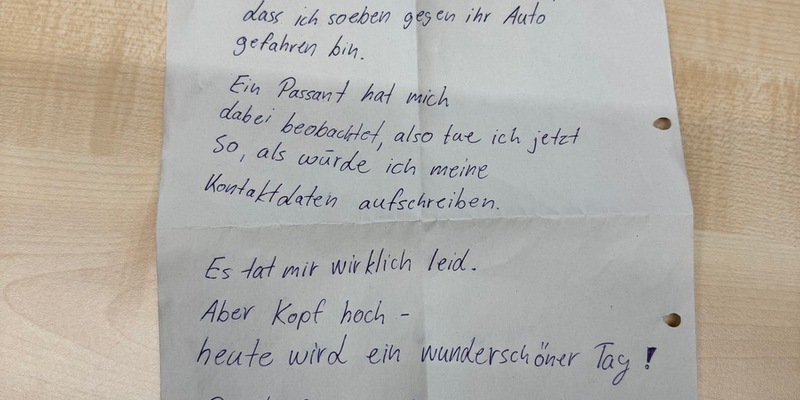 dass ich soeben gegen ihr Auto
gefahren bin.
Ein Passant hat mich
dabei beobachtet, also tue ich jetzt
so, als würde ich meine
Kontaktdaten aufschreiben.
Es tat mir wirklich leid.
Aber Kopf hoch -
heute wird ein wunderschöner Tag!